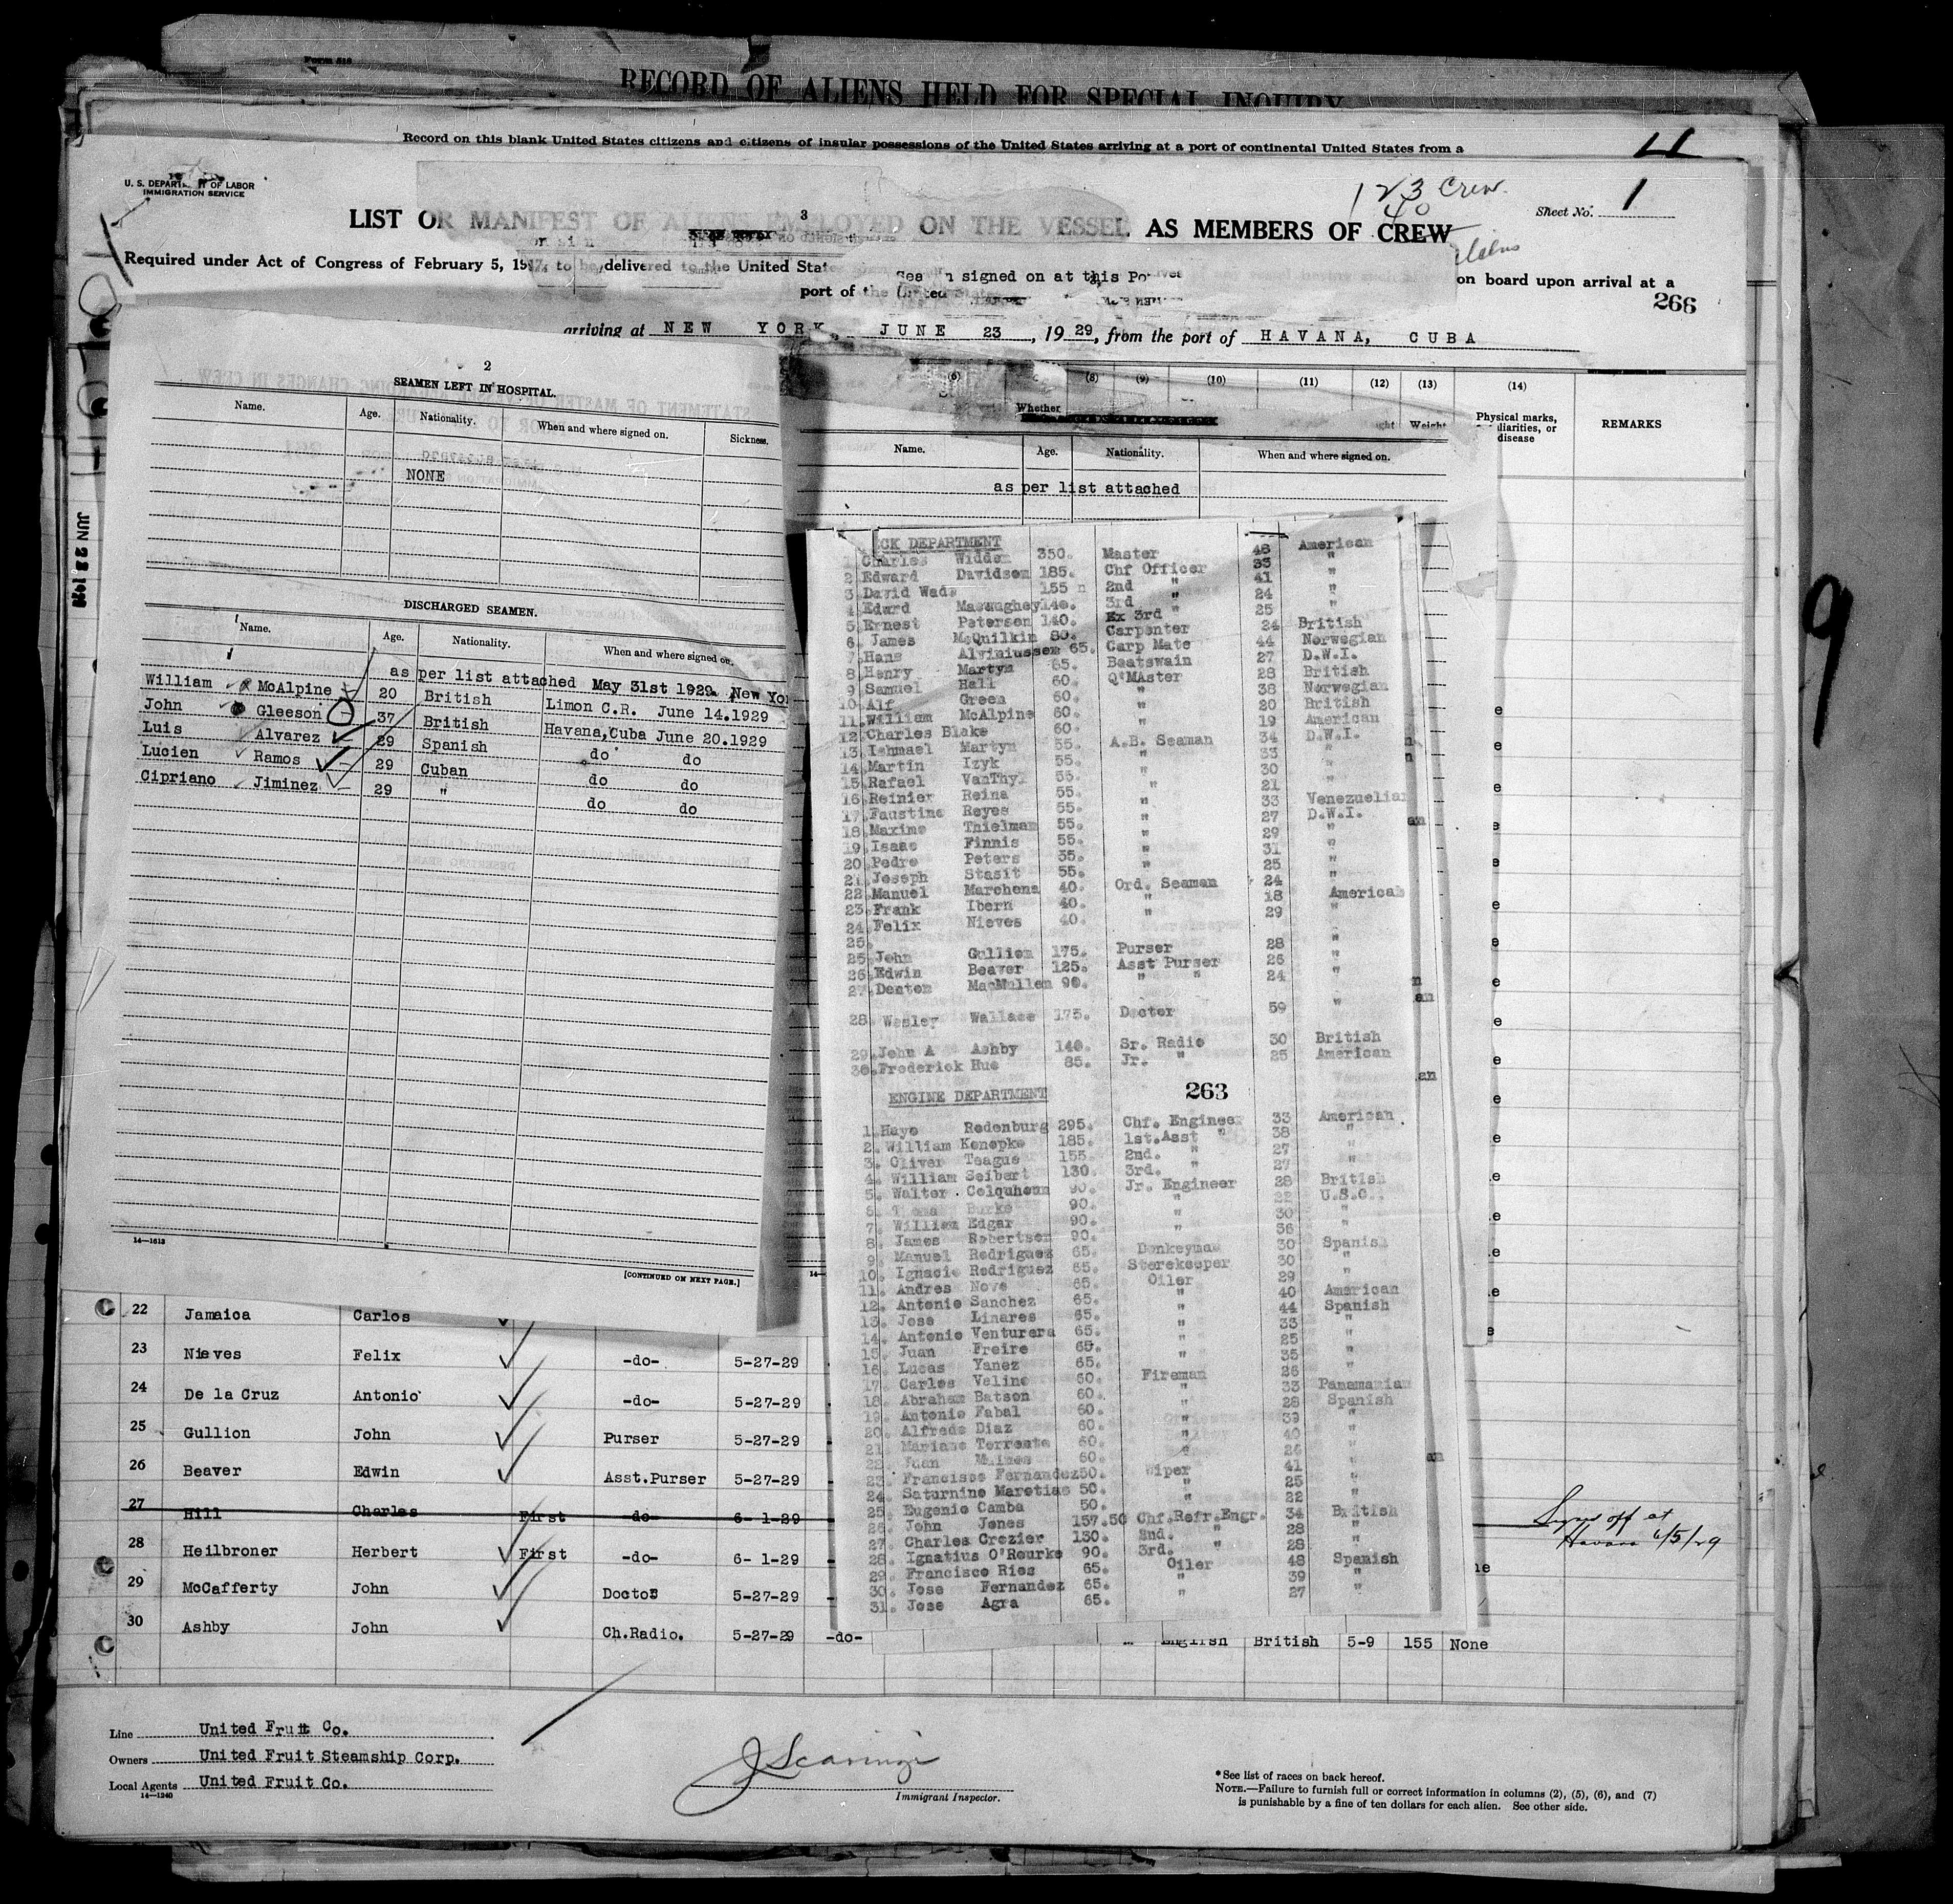 Form 518
RECORD OF ALIENS HELD FOR SPECIAL INQUIRY
Record on this blank United States citizens and citizens of insular possessions of the United States arriving at a port of continental United States from a
U. S. DEPARTMENT OF LABOR
IMMIGRATION SERVICE
123 Crew
40
Aliens
Sheet No. 1
3
LIST OR MANIFEST OF ALIENS EMPLOYED ON THE VESSEL AS MEMBERS OF CREW
Required under Act of Congress of February 5, 1917, to be delivered to the United States
Seamen signed on at this Port
on board upon arrival at a
port of the United States
266
arriving at NEW YORK, JUNE 23, 1929, from the port of HAVANA, CUBA
(6) (8) (9) (10) (11) (12) (13) (14)
Whether
Weight
Physical marks, peculiarities, or disease
REMARKS
JUN 23 1929
9
2
SEAMEN LEFT IN HOSPITAL.
Name. Age. Nationality. When and where signed on. Sickness.
NONE
DISCHARGED SEAMEN.
Name. Age. Nationality. When and where signed on.
as per list attached May 31st 1929. New Yo
William McAlpine 20 British Limon C.R. June 14.1929
John Gleeson 37 British Havana,Cuba June 20.1929
Luis Alvarez 29 Spanish do do
Lucien Ramos 29 Cuban do do
Cipriano Jiminez 29 " do do
14—1613
[CONTINUED ON NEXT PAGE.]
Name. Age. Nationality. When and where signed on.
as per list attached
CK DEPARTMENT
1. Charles Widden 350. Master 48 American
2. Edward Davidson 185. Chf Officer 33 "
3. David Wade 155 2nd " 41 "
4. Edward Macaughey 140. 3rd " 24 "
5. Ernest Petersen 140. Ex 3rd " 25 "
6. James McQuilkin 80. Carpenter 24 British
7. Hans Alviniussen 65. Carp Mate 44 Norwegian
8. Henry Martyn 65. Boatswain 27 D.W.I.
9. Samuel Hall 60. Q'MAster 28 British
10. Alf Green 60. " 38 Norwegian
11. William McAlpine 60. " 20 British
12. Charles Blake 60. " 19 American
13. Ishmael Martyn 55. A.B. Seaman 34 D.W.I.
14. Martin Izyk 55. " 33 "
15. Rafael VanThyl 55. " 30 "
16. Reinier Reina 55. " 21 "
17. Faustino Reyes 55. " 33 Venezuelian
18. Maximo Thielman 55. " 27 D.W.I.
19. Isaac Finnis 55. " 29 "
20. Pedro Peters 35. " 31 "
21. Joseph Stasit 55. " 25 "
22. Manuel Marchena 40. Ord. Seaman 24 "
23. Frank Ibern 40. " 18 American
24. Felix Nieves 40. " 29 "
25.
25. John Gullion 175. Purser 28 "
26. Edwin Beaver 125. Asst Purser 26 "
27. Denton MacMullen 90. " " 24 "
28. Wesley Wallace 175. Doctor 59 "
29. John A Ashby 140. Sr. Radio 30 British
30. Frederick Hue 85. Jr. " 25 American
263
ENGINE DEPARTMENT
1. Hayo Redenburg 295. Chf. Engineer 33 American
2. William Konopka 185. 1st.Asst " 38 "
3. Oliver Teague 155. 2nd. " 27 "
4. William Seibert 130. 3rd. " 27 "
5. Walter Colquhoun 90. Jr. Engineer 28 British
6. Burke 90. " 22 U.S.C.
7. William Edgar 90. " 30 "
8. James Robertson 90. " 36 "
9. Manuel Rodriguez 65. Donkeyman 30 Spanish
10. Ignacio Rodriguez 65. Storekeeper 30 "
11. Andres Nove 65. Oiler 29 "
12. Antonio Sanchez 65. " 40 American
13. Jose Linares 65. " 44 Spanish
14. Antonio Venturera 65. " 33 "
15. Juan Freire 65. " 25 "
16. Lucas Yanez 65. " 35 "
17. Carlos Veline 60. Fireman 26 "
18. Abraham Batson 60. " 33 Panamanian
19. Antonio Fabal 60. " 28 Spanish
20. Alfredo Diaz 60. " 39 "
21. Mariano Torrente 60. " 40 "
22. Juan 60. " 26 "
23. Francisco Fernandez 50. Wiper 41 "
24. Saturnino Maretias 50. " 25 "
25. Eugenio Camba 50. " 22 "
26. John Jones 157.50 Chf.Refr.Engr. 34 British
27. Charles Crozier 130. 2nd. " 28 "
28. Ignatius O'Rourke 90. 3rd. " 28 "
29. Francisco Rios 65. Oiler 48 Spanish
30. Jose Fernandez 65. " 39 "
31. Jose Agra 65. " 27 "
22 Jamaica Carlos
23 Nieves Felix -do- 5-27-29
24 De la Cruz Antonio -do- 5-27-29
25 Gullion John Purser 5-27-29
26 Beaver Edwin Asst.Purser 5-27-29
27 Hill Charles First -do- 6- 1-29
Signed off at
Havana 6/5/29
28 Heilbroner Herbert First -do- 6- 1-29
29 McCafferty John Doctor 5-27-29
30 Ashby John Ch.Radio. 5-27-29 -do- English British 5-9 155 None
Line United Fruit Co.
Owners United Fruit Steamship Corp.
Local Agents United Fruit Co.
14—1240
J Scaringi
Immigrant Inspector.
* See list of races on back hereof.
NOTE.—Failure to furnish full or correct information in columns (2), (5), (6), and (7)
is punishable by a fine of ten dollars for each alien. See other side.